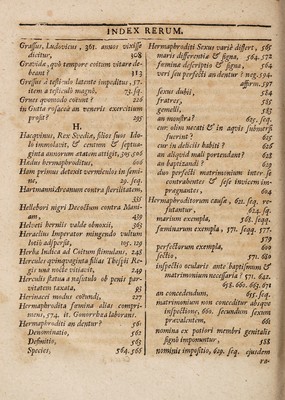 INDEX RERUM.
Grassus, Ludovicus, 361. annos vixisse
dicitur, 308
Gravida, quo tempore coitum vitare de-
beant? 112
Grossus à testiculo latente impeditus, 57.
item a testiculo magnô, 73. sq.
Grues quomodo coitant? 226
in Gutta rosacea an veneris exercitium
prosit? 295
H.
Hacquinus, Rex Svediæ, filios suos Ido-
lo immolavit, & centum & septua-
ginta annorum ætatem attigit, 305, 306
Hædus hermaphroditus, 606
Ham primus detexit vermiculos in semi-
ne, 29. sq.
Hartmanni dreanum contra sterilitatem,
335
Hellebori nigri Decoctum contra Ma-
am, 439
Helveti herniis valde obnoxii, 363
Heraclius Imperator mingendo vultum
lotiô adspersit, 105, 129
Herba Indica ad Coitum stimulans, 248
Hercules quinquaginta filias Thespii Re-
gis una nocte vitiavit, 249
Herculis statua a nasutulo ob penis par-
vitatem taxata, 95
Herinacei modus coëundi, 227
Hermaphrodita fæmina alias compri-
mens, 574. it. Gonorrhœa laborans.
Hermaphroditi an dentur? 561
Denominatio, 562
Definitio, 563
Species, 564. 566
Hermaphroditi Sexus variè differt, 565
maris differentiæ & signa, 564. 572
fæmina descriptio & signa, 564.
veri seu perfecti an dentur? neg. 594.
affirm. 597
sexus dubii, 584
fratres, 565
gemelli, 583
an monstra? 695. sq.
cur olim necati & in aquis submersi
fuerint? 617
cur in deliciis habiti? 626
an aliquid mali portendant? 628
an baptizandi? 629
duo perfecti matrimonium inter se
contrahentes & sese invicem im-
prægnantes, 604
Hermaphroditorum causæ, 621. seq. re-
futantur, 624. sq.
marium exempla, 568. seqq.
fæminarum exempla, 571. seqq.
579
perfectorum exempla, 609
sectio, 571. 680
inspectio ocularis ante baptismum &
matrimonium necessaria? 571. 642.
658. 661. 663. 671
an concedendum, 675. sq.
matrimonium non conceditur absque
inspectione, 660. secundum sexum
prævalentem, 661
nomina ex potiori membri genitalis
signô imponuntur, 668
nominis impositio, 629. seq. ejusdem
ra-